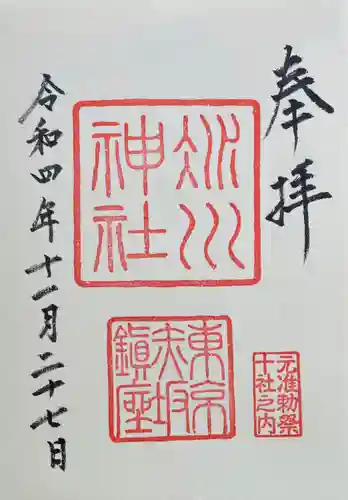 奉拝
氷川
神社
東京
赤坂
鎮座
元准勅祭
十社之内
令和四年十一月二十七日